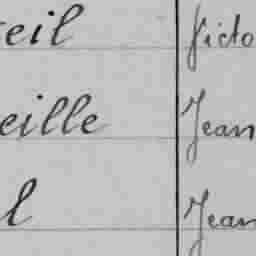 eil Victo
eille Jean
l Jean